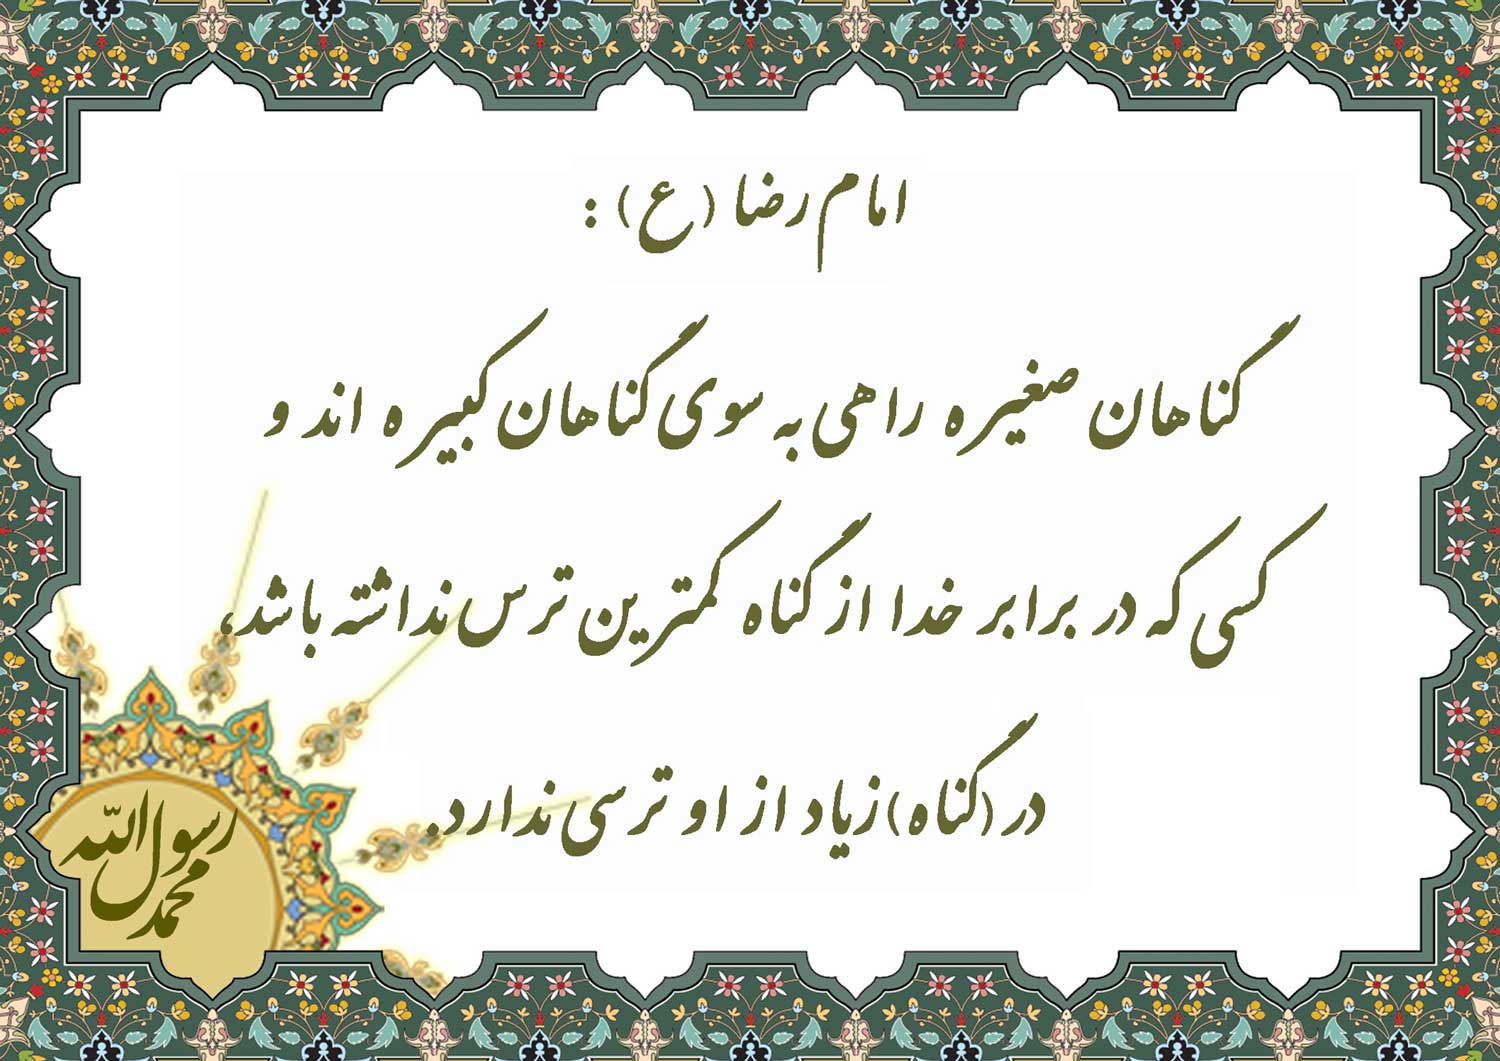 امام رضا (ع) :
گناهان صغیره راهی به سوی گناهان کبیره اند و
کسی که در برابر خدا از گناه کمترین ترس نداشته باشد،
در (گناه) زیاد از او ترسی ندارد.
محمد رسول الله